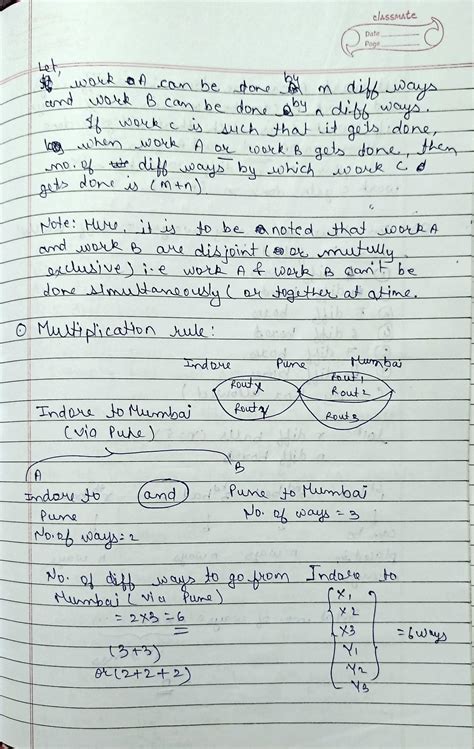 classmate
Date
Page
Let,
work A can be done by m diff ways
and work B can be done by n diff ways.
If work c is such that it gets done,
when work A or work B gets done, then
no. of diff ways by which work C
gets done is (m+n)
Note: Here, it is to be noted that work A
and work B are disjoint (or mutully
exclusive) i.e work A & work B can't be
done simultaneously (or together at atime.
Multiplication rule:
Indore Pune Mumbai
Rout X Rout 1
Rout 2
Rout Y Rout 3
Indore to Mumbai
(via Pune)
A B
Indore to and Pune to Mumbai
Pune No. of ways = 3
No. of ways = 2
No. of diff ways to go from Indore to
Mumbai (via Pune)
= 2x3 = 6
(3+3)
or (2+2+2)
X1
X2
X3
Y1
Y2
Y3
= 6 ways